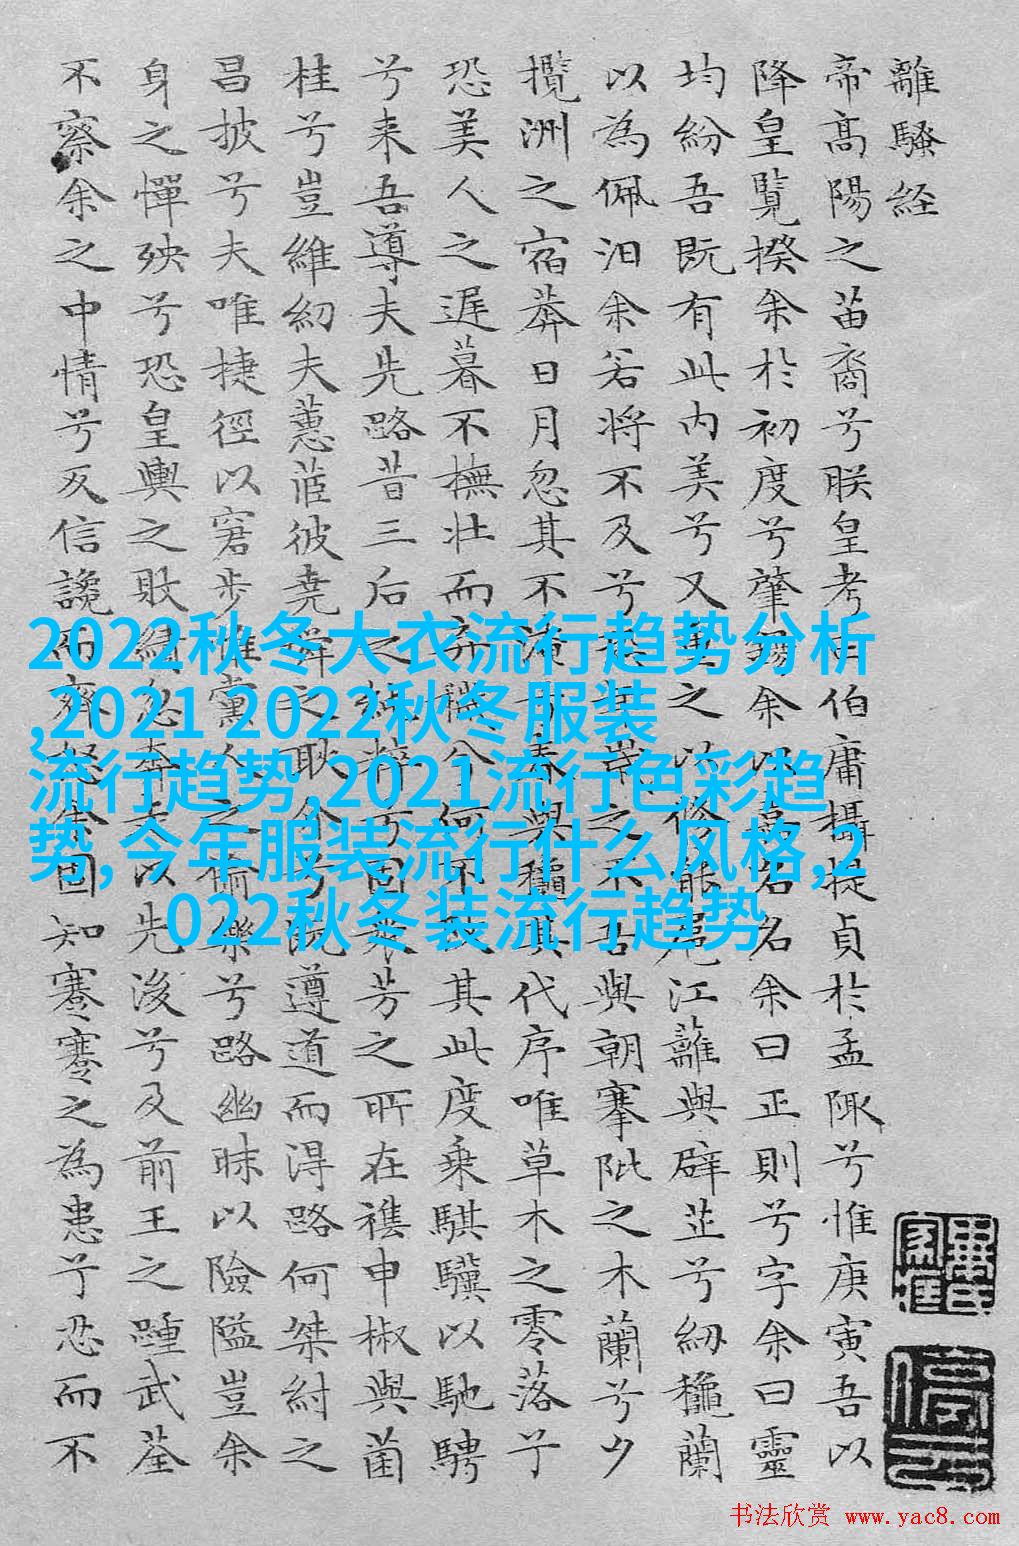 離騷経
帝高陽之苗裔兮朕皇考曰伯庸攝提貞於孟陬兮惟庚寅吾以
降皇覽揆余於初度兮肇錫余以嘉名名余曰正則兮字余曰靈
均紛吾既有此内美兮又重之以脩能扈江蘺與辟芷兮紉穐蘭
以為佩汨余若將不及兮恐年歳之不吾與朝搴阰之木蘭兮夕
攬洲之宿莽日月忽其不淹兮春與穐其代序唯草木之零落兮
恐美人之遲暮不撫壯而棄穢兮何不改其此度乗騏驥以馳騁
兮来吾導夫先路昔三后之純粹兮固衆芳之所在襍申椒與菌
桂兮豈維紉夫蕙茝彼堯舜之耿介兮既遵道而得路何桀紂之
昌披兮夫唯捷徑以窘步惟黨人之偷樂兮路幽昧以險隘豈余
身之憚殃兮恐皇輿之敗績忽奔走以先後兮及前王之踵武荃
不察余之中情兮反信讒而齊怒余固知謇謇之為患兮忍而不
2022秋冬大衣流行趋势分析
,2021 2022秋冬服装
流行趋势,2021流行色彩趋
势,今年服装流行什么风格,2
022秋冬装流行趋势
书法欣赏 www.yac8.com